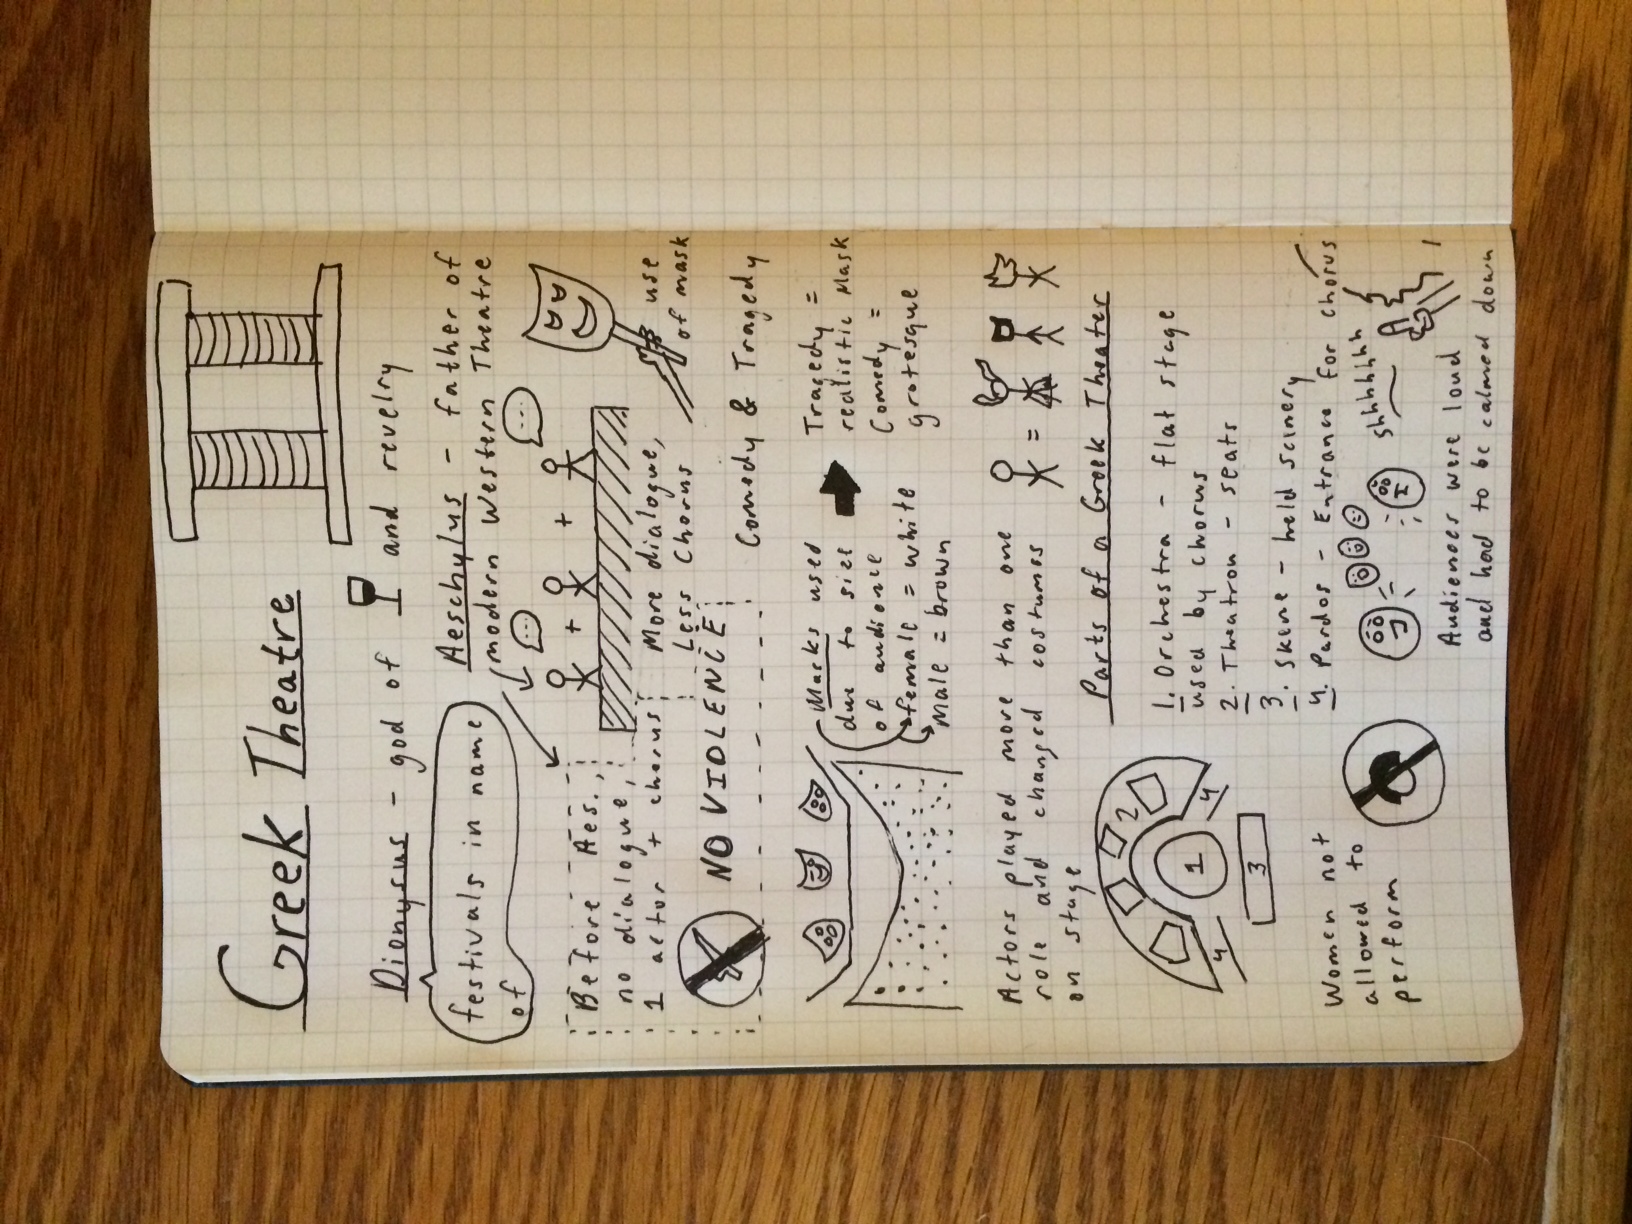 Greek Theatre
Dionysus - god of and revelry
festivals in name
of
Aeschylus - father of
modern Western Theatre
Before Aes.,
no dialogue,
1 actor + chorus
NO VIOLENCE
+ +
More dialogue,
Less Chorus
use
of mask
Comedy & Tragedy
Masks used
due to size
of audience
female = white
male = brown
Tragedy =
realistic Mask
Comedy =
grotesque
Actors played more than one
role and changed costumes
on stage
=
Parts of a Greek Theater
1
2
3
4
4
1. Orchestra - flat stage
used by chorus
2. Theatron - seats
3. Skene - held scinery
4. Pardos - Entrance for chorus
Women not
allowed to
perform
shhhhhhh
Audiences were loud
and had to be calmed down